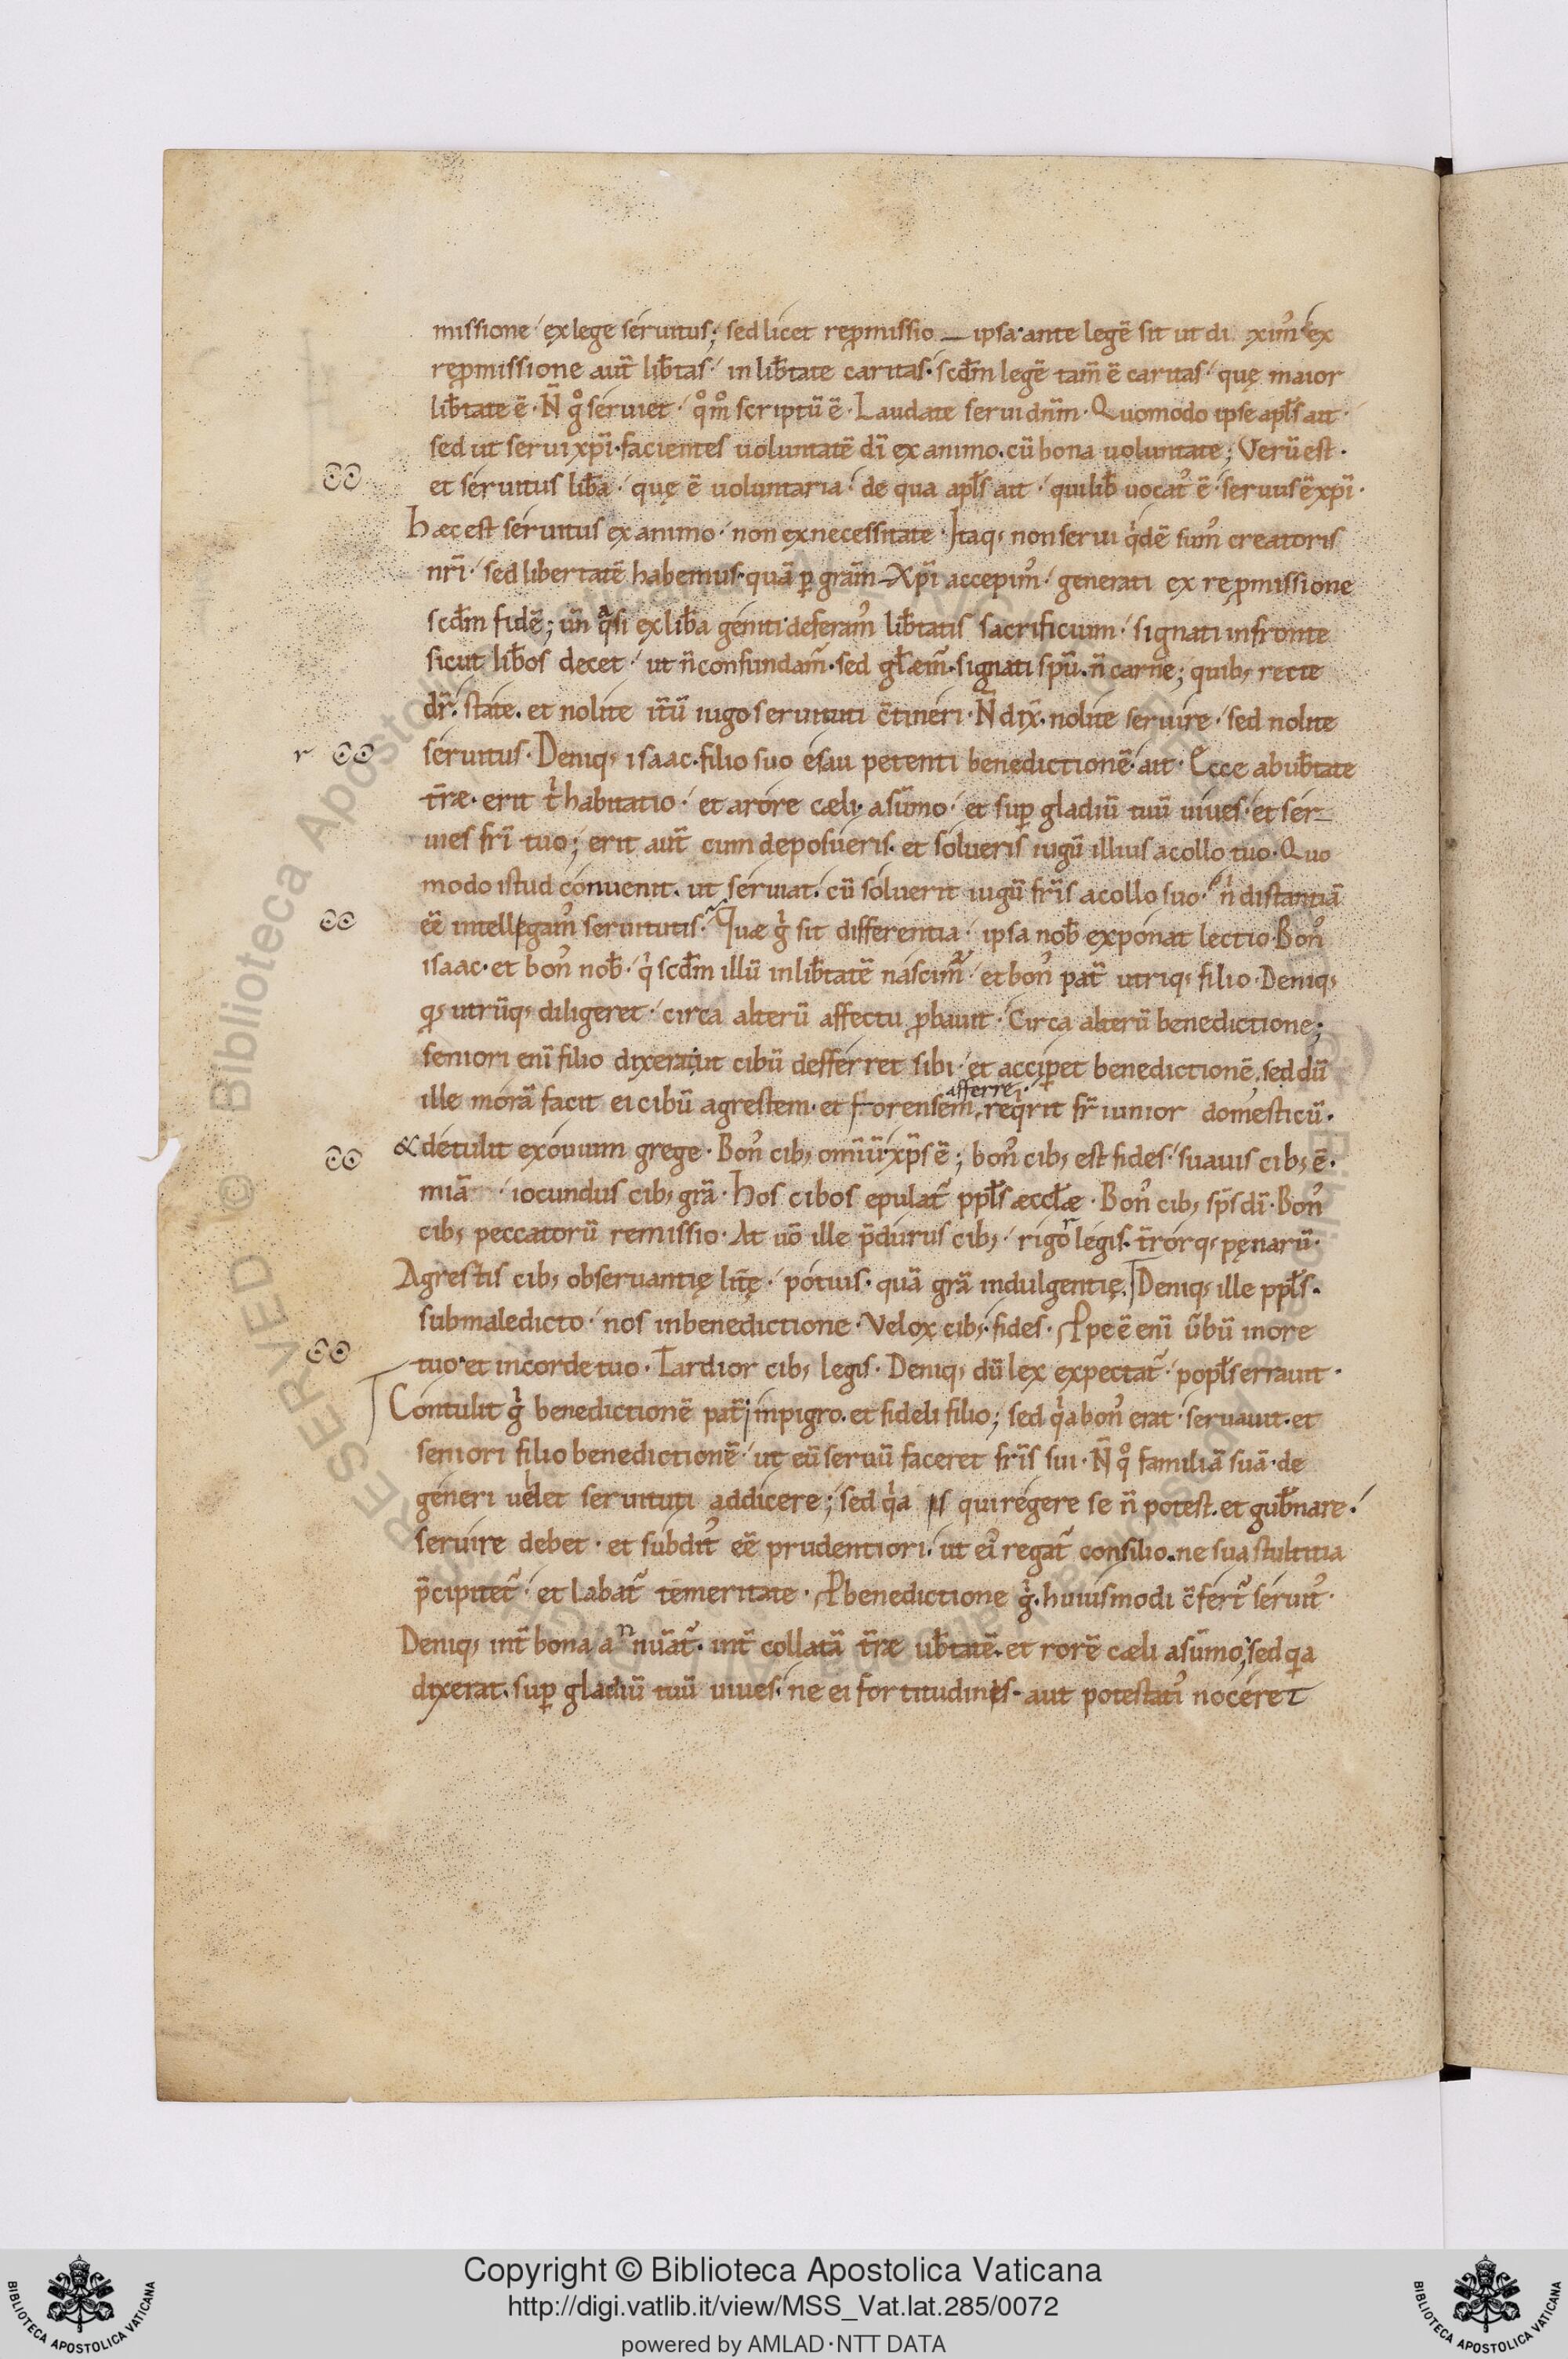 missione · ex lege seruitus ; sed licet rep̱missio — ipsa · ante legē sit ut di ximꝰ ex
rep̱missione aut̄ lib̄tas · in lib̄tate caritas · scd̄m legē tam̄ ē caritas · quę maior
lib̄tate ē · N̄ gͦ seruiet · qͦmͦ scriptū ē · Laudate serui dn̄m · Quomodo ipse apl̄s ait ·
sed ut serui xp̄i · facientes uoluntatē dī ex animo · cū bona uoluntate ; Verū est ·
et seruitus lib̄a · quę ē uoluntaria · de qua apl̄s ait · qui lib̄ uocatꝰ ē · seruus ē xp̄i ·
hæc est seruitus ex animo · non ex necessitate · Itaqꝫ non serui qͥdē sumꝰ creatoris
nr̄i · sed libertatē habemus · quā ꝑ grām xp̄i accepimꝰ · generati ex rep̱missione
scd̄m fidē ; un̄ qͣsi ex lib̄a geniti deferamꝰ lib̄tatis sacrificium · signati in fronte
sicut lib̄os decet · ut n̄ confundam̄ · sed gl̄æm̄ · signati sp̄u · n̄ carne ; quibꝫ recte
dr̄ · state · et nolite it̄ū iugo seruituti c̄tineri · N̄ dix̄ · nolite seruire · sed nolite
r seruitus · Deniqꝫ isaac · filio suo esau petenti benedictionē · ait · Ecce ab ub̄tate
t̄ræ · erit tͥ habitatio · et a rore cæli · a sūmo · et suꝑ gladiū tuū uiues · et ser-
uies fr̄i tuo ; erit aut̄ cum deposueris · et solueris iugū illius a collo tuo · Quo
modo istud conuenit · ut seruiat · cū soluerit iugū fr̄is a collo suo · n̄ distantiā
eē intellegamꝰ seruitutis · Quæ gͥ sit differentia · ipsa nob̄ exponat lectio · Bonꝰ
isaac · et bonꝰ nob̄ · qͥ scd̄m illū in lib̄tatē nascim̄ · et bonꝰ pat̄ utriqꝫ filio · Deniqꝫ
qꝫ utrūqꝫ diligeret · circa alterū affectu ꝓbauit · Circa alterū benedictione ;
seniori enī filio dixerat ut cibū defferret sibi · et acciꝑet benedictionē · sed dū
afferre ·
ille morā facit ei cibū agrestem · et forensem reqͥrit fr̄ iunior domesticū ·
& detulit ex ouium grege · Bonꝰ cibꝫ omīū xp̄s ē ; bonꝰ cibꝫ est fides · suauis cibꝫ ē ·
miā · iocundus cibꝫ grā · hos cibos epulat̄ ppl̄s æccl̄æ · Bonꝰ cibꝫ sp̄s dī · Bonꝰ
cibꝫ peccatorū remissio · At uō ille p̄durus cibꝫ · rigor legis · t̄rorqꝫ pęnarū ·
Agrestis cibꝫ obseruantię lit̄ę · potius · quā grā indulgentię · Deniqꝫ ille ppl̄s ·
sub maledicto · nos in benedictione · Velox cibꝫ · fides · Ppe ē enī ūbū in ore
tuo · et in corde tuo · Tardior cibꝫ legis · Deniqꝫ dū lex expectat̄ · popl̄s errauit ·
Contulit gͥ benedictionē pat̄ inpigro · et fideli filio ; sed qͥa bonꝰ erat · seruauit · et
seniori filio benedictionē · ut eū seruū faceret fr̄is sui · N̄ qͦ familiā suā · de
generi uellet seruituti addicere ; sed qͥa is qui regere se n̄ potest · et gub̄nare ·
seruire debet · et subditꝰ eē prudentiori · ut eiꝰ regat̄ consilio · ne sua stultitia
p̄cipitet̄ · et labat̄ temeritate · P benedictione gͥ · huiusmodi c̄fert̄ seruitꝰ ·
Deniqꝫ int̄ bona annūat̄ · int̄ collatā t̄ræ ub̄tatē · et rorē cæli a sūmo ; sed qͥa
dixerat · suꝑ gladiū tuū uiues · ne ei fortitudinis · aut potestatꝰ noceret
Copyright © Biblioteca Apostolica Vaticana
http://digi.vatlib.it/view/MSS_Vat.lat.285/0072
powered by AMLAD·NTT DATA